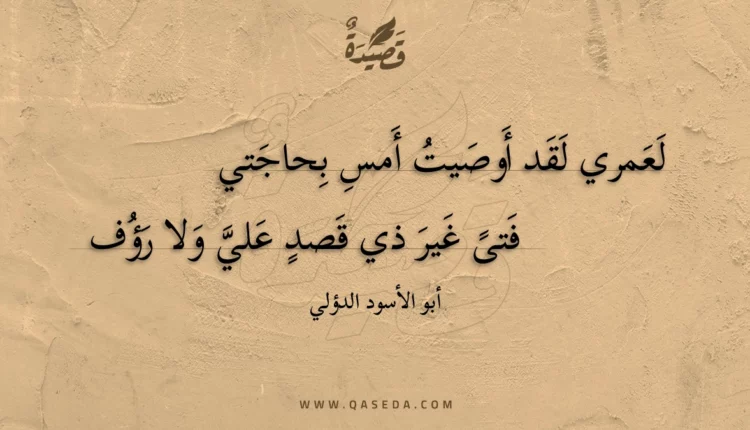 قَصِيدَةٌ
لَعَمري لَقَد أَوصَيتُ أَمسِ بِحاجَتي
فَتىً غَيرَ ذي قَصدٍ عَليَّ وَلا رَؤُف
أبو الأسود الدؤلي
WWW.QASEDA.COM